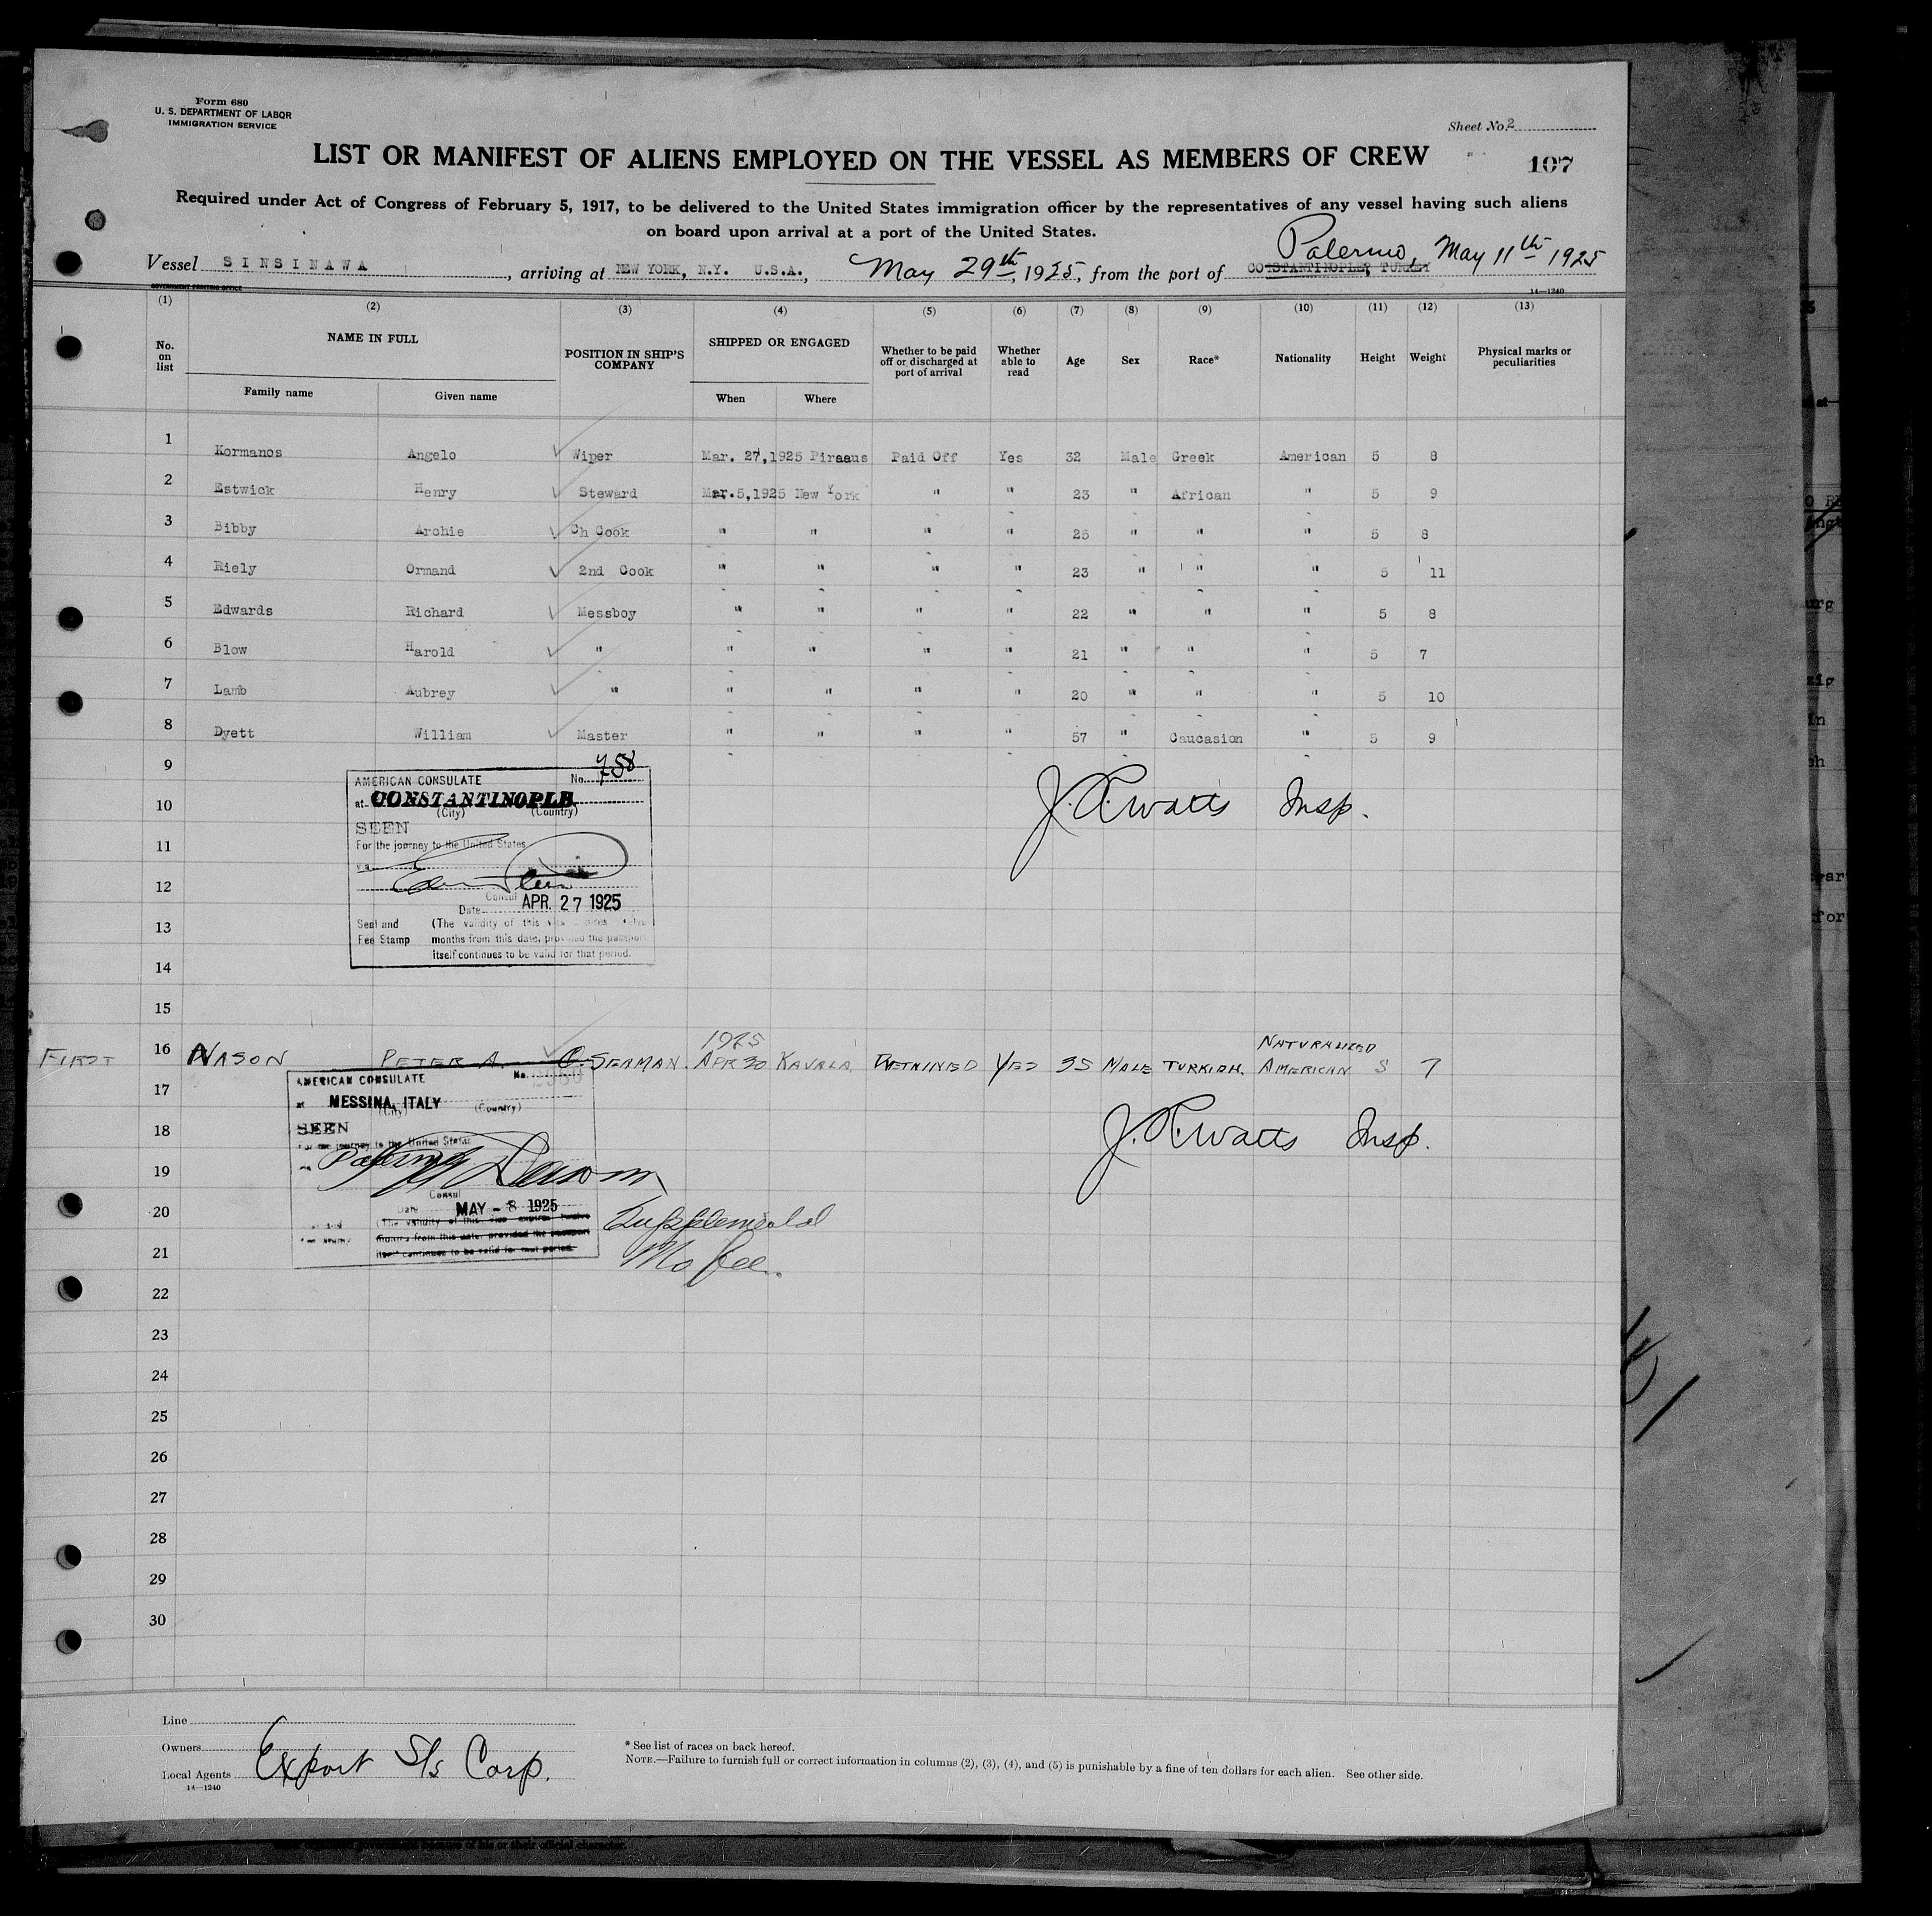 Form 680
U. S. DEPARTMENT OF LABOR
IMMIGRATION SERVICE
Sheet No. 2
LIST OR MANIFEST OF ALIENS EMPLOYED ON THE VESSEL AS MEMBERS OF CREW
107
Required under Act of Congress of February 5, 1917, to be delivered to the United States immigration officer by the representatives of any vessel having such aliens
on board upon arrival at a port of the United States.
Palermo, May 11th 1925
Vessel SINSINAWA, arriving at NEW YORK, N.Y. U.S.A., May 29th, 1925, from the port of CONSTANTINOPLE, TURKEY
GOVERNMENT PRINTING OFFICE
14—1240
(1) (2) (3) (4) (5) (6) (7) (8) (9) (10) (11) (12) (13)
No. on list NAME IN FULL POSITION IN SHIP'S COMPANY SHIPPED OR ENGAGED Whether to be paid off or discharged at port of arrival Whether able to read Age Sex Race* Nationality Height Weight Physical marks or peculiarities
Family name Given name When Where
1 Kormanos Angelo Wiper Mar. 27,1925 Piraaus Paid Off Yes 32 Male Greek American 5 8
2 Estwick Henry Steward Mar.5,1925 New York " " 23 " African " 5 9
3 Bibby Archie Ch Cook " " " " 25 " " " 5 8
4 Riely Ormand 2nd Cook " " " " 23 " " " 5 11
5 Edwards Richard Messboy " " " " 22 " " " 5 8
6 Blow Harold " " " " " 21 " " " 5 7
7 Lamb Aubrey " " " " " 20 " " " 5 10
8 Dyett William Master " " " " 57 " Caucasion " 5 9
9
10
11
12
13
14
15
AMERICAN CONSULATE No. 758
at CONSTANTINOPLE
(City) (Country)
SEEN
For the journey to the United States
via
Consul
Date APR. 27 1925
Seal and Fee Stamp
(The validity of this visa expires twelve
months from this date, provided the passport
itself continues to be valid for that period.
J. R. Watts Insp.
1925
NATURALIZED
FIRST 16 NASON PETER A. O. SEAMAN. APR 30 KAVALA. DETAINED YES 35 MALE TURKISH. AMERICAN 5 7
17
18
19
20
21
AMERICAN CONSULATE No.
at MESSINA, ITALY
(City) (Country)
SEEN
For the journey to the United States
Palermo
Consul
Date MAY - 8 1925
(The validity of this visa expires twelve
months from this date, provided the passport
itself continues to be valid for that period.
J. R. Watts Insp.
Supplemental
No fee.
22
23
24
25
26
27
28
29
30
Line
Owners
Local Agents
Export S/s Corp.
14—1240
* See list of races on back hereof.
NOTE.—Failure to furnish full or correct information in columns (2), (3), (4), and (5) is punishable by a fine of ten dollars for each alien. See other side.